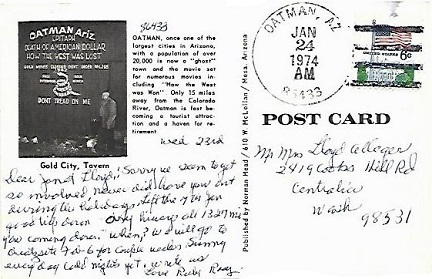 86433
OATMAN Ariz.
EPITAPH
DEATH OF AMERICAN DOLLAR
HOW THE WEST WAS LOST
DONT TREAD ON ME
Gold City, Tavern
OATMAN, once one of the
largest cities in Arizona,
with a population of over
20,000 is now a "ghost"
town and the movie set
for numerous movies in-
cluding "How the West
was Won" Only 15 miles
away from the Colorado
River, Oatman is fast be-
coming a tourist attrac-
tion and a haven for re-
tirement.
Wed 23rd
Dear Jan & Lloyd, Sorry we seem to get
so involved never did have you out
during the holidays. Left the 4th Jan
good trip down. Only
you coming down," when? We will go to
Feb 6 for couple weeks. Sunny
every day cold nights yet, write us
Love Ruby Ray
Published by Norman Mead / 610 W. McLellan / Mesa, Arizona
OATMAN, AZ
JAN
24
1974
AM
86433
6c
POST CARD
Mr Mrs Lloyd
2419 Cooks Hill Rd
Centralia
Wash
98531